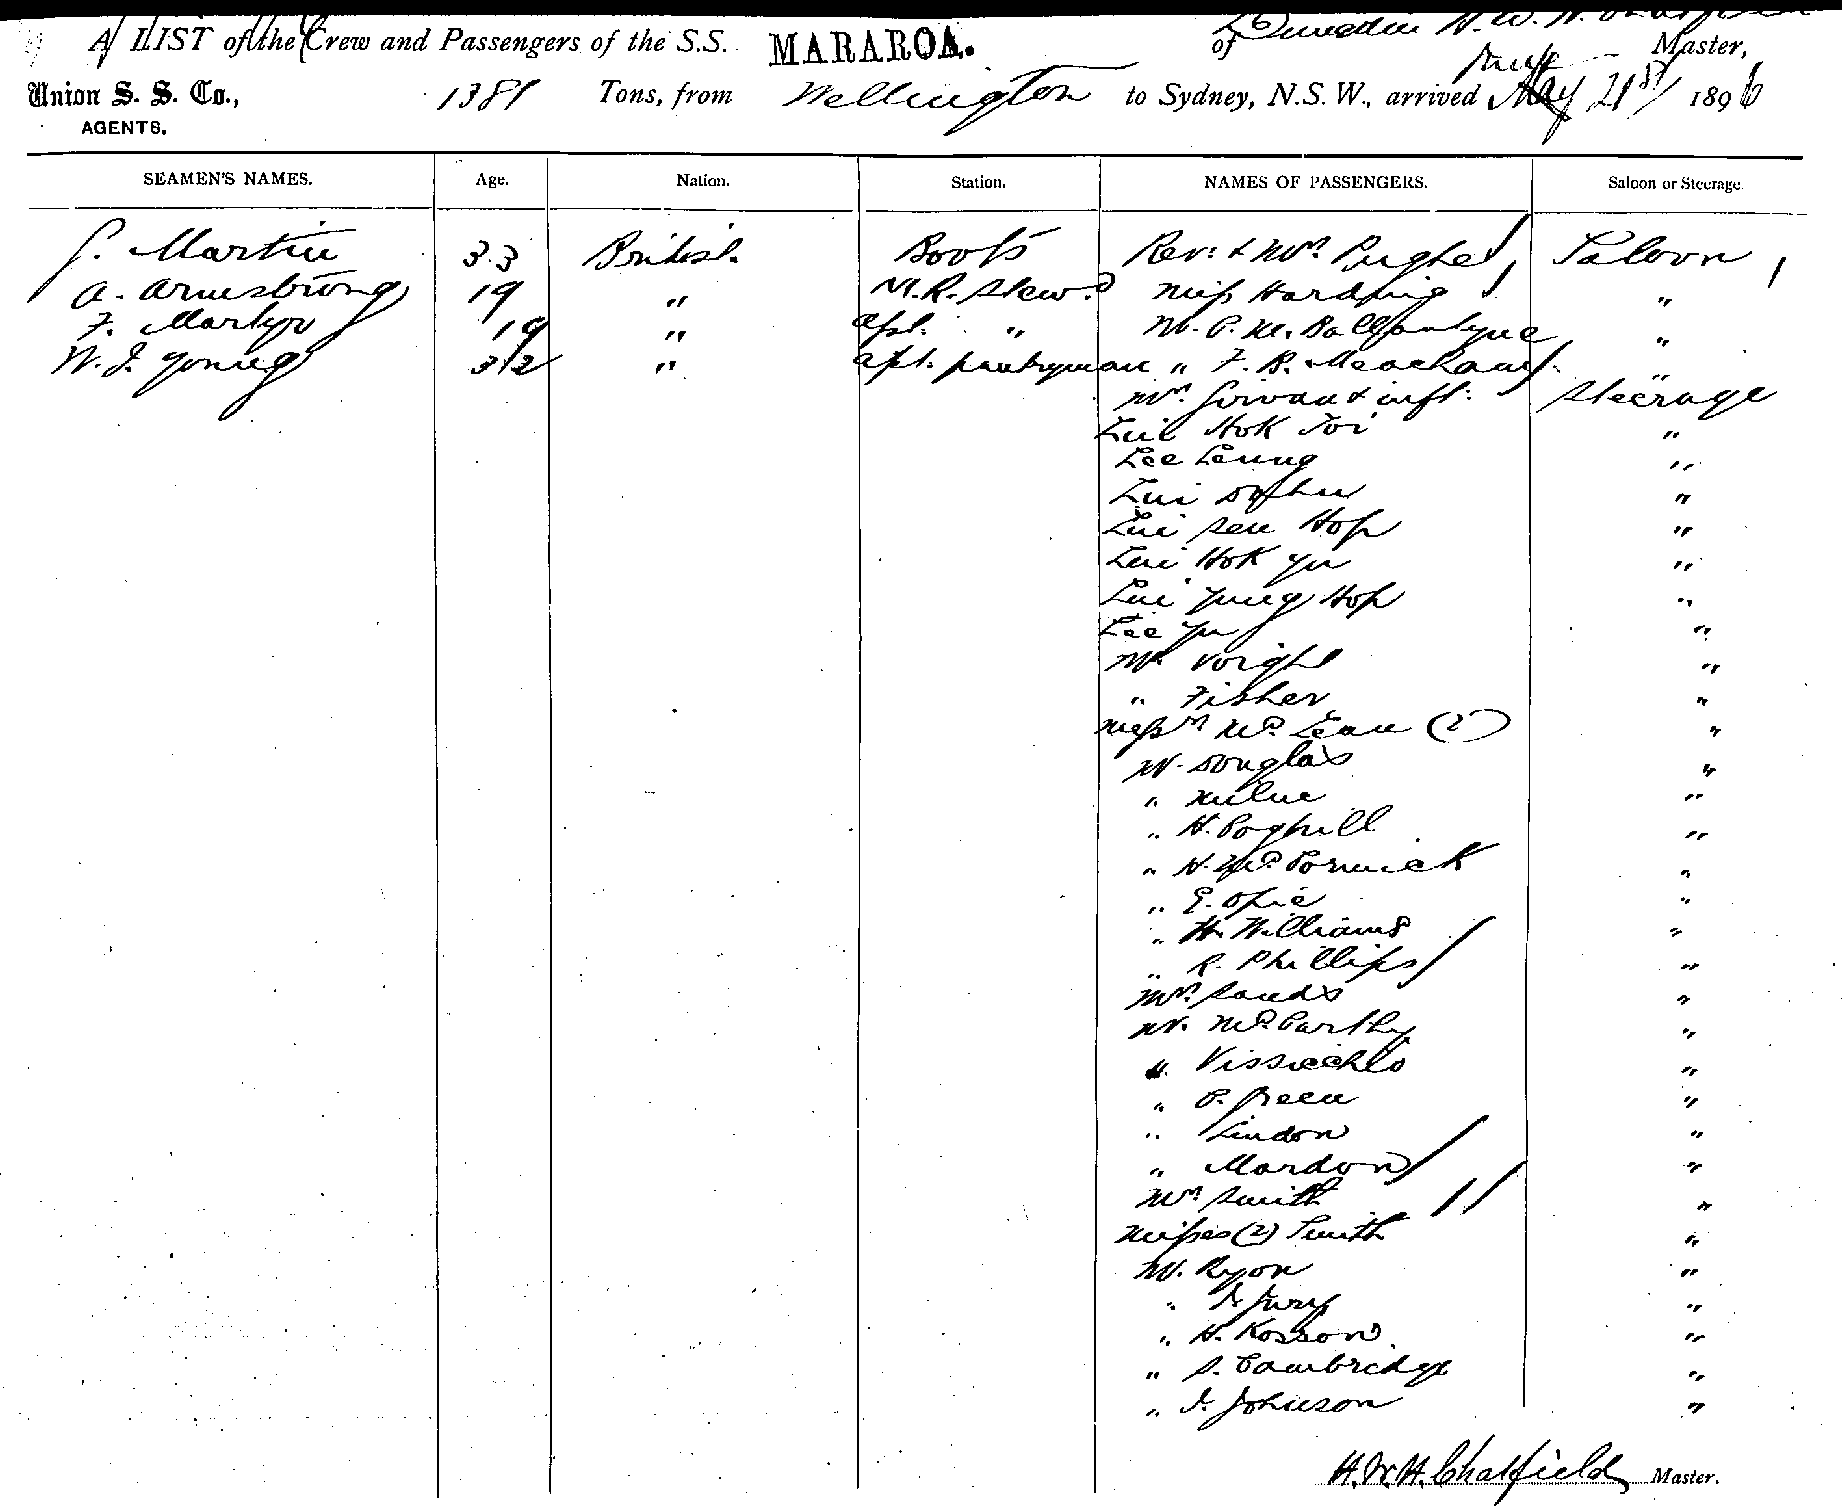 A LIST of the Crew and Passengers of the S.S. MARAROA. of Dunedin H. W. H. Chatfield Master,
Union S. S. Co., AGENTS. 1381 Tons, from Wellington to Sydney, N.S.W., arrived May June 21st 1896
SEAMEN'S NAMES. Age. Nation. Station. NAMES OF PASSENGERS. Saloon or Steerage.
Martin 33 British Boots Rev: & Mrs Pughe Saloon
A. Armstrong 19 " M.R. Stewd Miss Harding "
F. Martyn 19 " asst. " Mr. P. M. Ballantyne "
W. J. Young 32 " asst. pantryman " F. B. Meacham "
Mrs. Girvan & inft. Steerage
Lui Hok Toi "
Lee Leung "
Lui "
Lui Seu Hop "
Lui Hok Yu "
Lui Yung Hop "
Lee Yu "
Mr. Voight "
" Fisher "
Messrs McLean (2) "
Mr. Douglas "
" Milne "
" H. Coghill "
" H. McCormick "
" E. Opie "
" H. Williams "
" R. Phillips "
Mrs. Sands "
Mr. McCarthy "
" "
" P. Green "
" Lindon "
" Mardon "
Mrs. Smith "
Misses (2) Smith "
Mr. Ryon "
" J. Jury "
" H. Kosson "
" S. Cambridge "
" J. Johnson "
H. W. H. Chatfield Master.